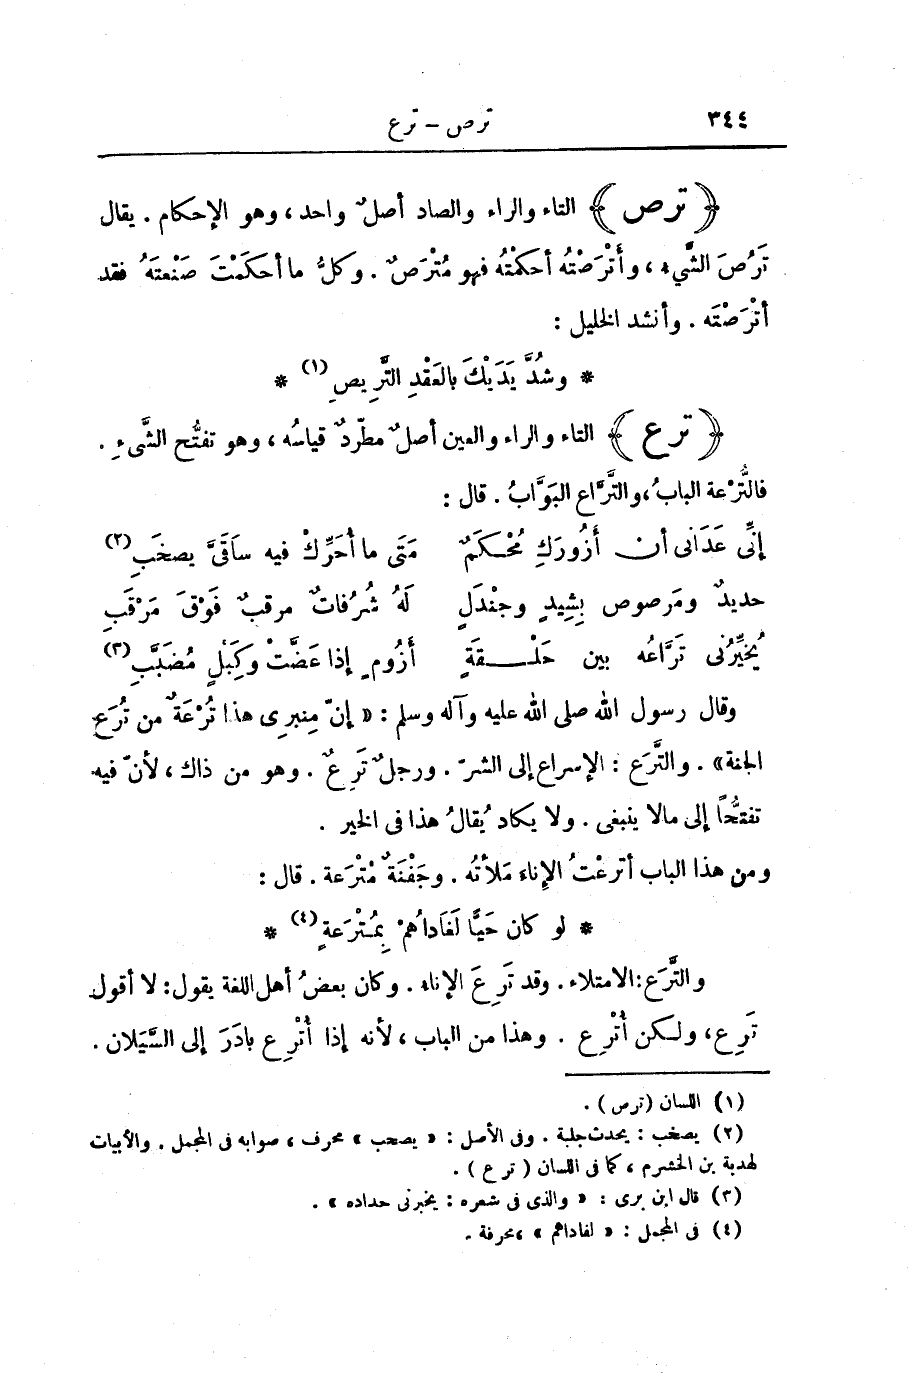 ٣٤٤
ترص – ترع
﴿ ترص ﴾ التاء والراء والصاد أصلٌ واحد، وهو الإحكام . يقال
تَرُصَ الشَّيء، وأَتْرَصْتُه أحكمْتُه فهو مُتْرَصٌ . وكلُّ ما أحكَمْتَ صَنْعتَهُ فقد
أتْرَصْتَه . وأنشد الخليل :
* وشُدَّ يَدَيْكَ بالعَقْدِ التَّرِيصِ (١) *
﴿ ترع ﴾ التاء والراء والعين أصلٌ مطّردٌ قياسُه ، وهو تفتُّح الشَّىءِ .
فالتُّرْعة البابُ، والتَّرَّاع البَوَّابُ . قال :
إنِّى عَدَانى أن أَزُورَكِ مُحْكَمٌ مَتَى ما أُحَرِّكْ فيه ساقَىَّ يصخَبِ (٢)
حديدٌ ومَرصوص بِشِيدٍ وجنْدَلٍ لَهُ شُرُفاتٌ مرقبٌ فَوْقَ مَرْقَبِ
يُخبِّرُنى تَرَّاعُه بين حَلْـقَةٍ أَزُومٍ إذا عَضَّتْ وكَبْلٍ مُضَبَّبِ (٣)
وقال رسول الله صلى الله عليه وآله وسلم : « إنّ مِنبرِى هذا تُرْعَةٌ من تُرَعِ
الجنة» . والتَّرَع : الإسراع إلى الشرّ . ورجلٌ تَرِعٌ . وهو من ذاك ، لأنّ فيه
تفتحُّاً إلى مالا ينبغى . ولا يكاد يُقالُ هذا فى الخير .
ومن هذا الباب أترعْتُ الإناء مَلأتُه . وجَفْنَةٌ مُتْرَعة . قال :
* لو كان حَيًّا لَغَاداهُمْ بِمُتْرَعةٍ (٤) *
والتَّرَع : الامتلاء . وقد تَرِعَ الإناء . وكان بعضُ أهل اللغة يقول : لا أقول
تَرِع، ولكن أُتْرِع . وهذا من الباب ، لأنه إذا أُتْرِع بادَرَ إلى السَّيَلان .
(١) اللسان (ترص) .
(٢) يصخب : يحدث جلبة . وفى الأصل : « يصحب » محرف ، صوابه فى المجمل . والأبيات
لهدبة بن الخشرم ، كما فى اللسان ( ترع ) .
(٣) قال ابن برى : « والذى فى شعره : يخبرنى حداده » .
(٤) فى المجمل : « لفاداهم » ، محرفة .